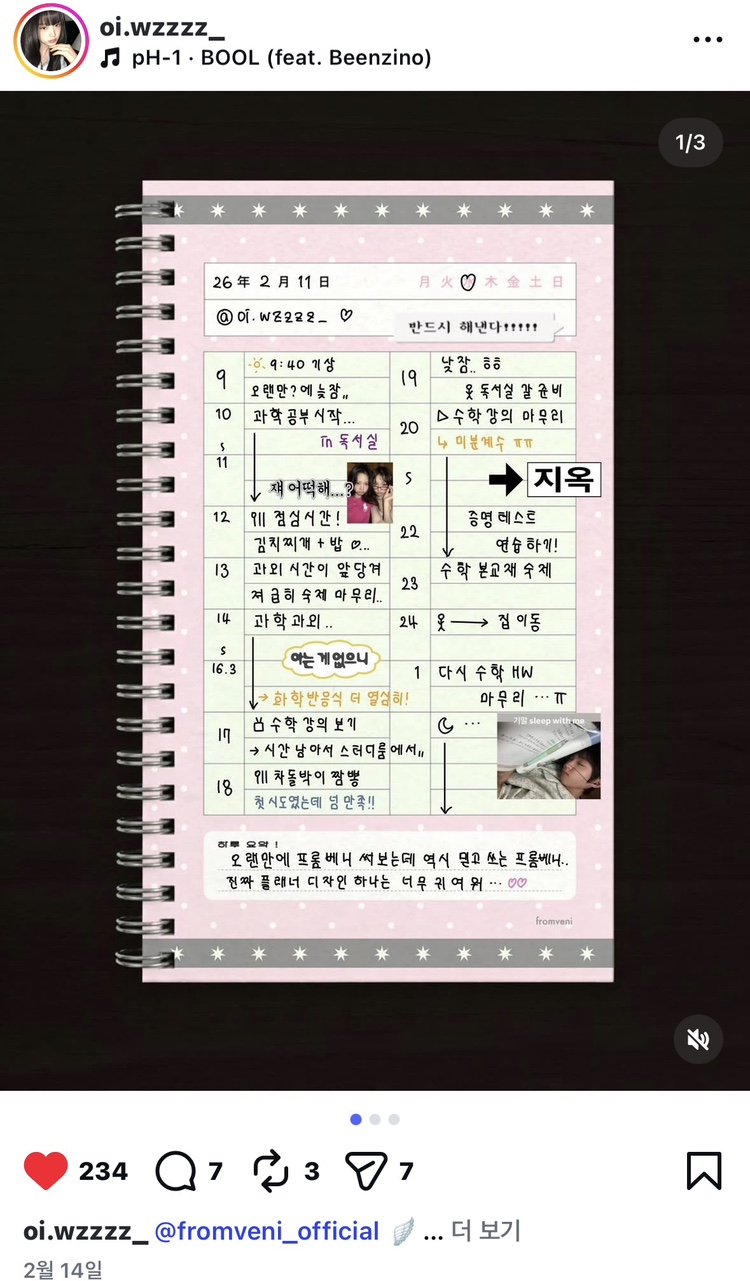 oi.wzzzz_
pH-1 · BOOL (feat. Beenzino)
1/3
26년 2월 11일
月 火 木 金 土 日
@oi.wzzzz_ ♡
반드시 해낸다!!!!!
9
9:40 기상
오랜만?에 늦잠,,
10
과학 공부 시작...
in 독서실
s
11
쟤 어떡해...?
12
점심시간!
김치찌개 + 밥 ♡...
13
과외 시간이 앞당겨
져 급히 숙제 마무리..
14
과학 과외..
s
16.3
아는 게 없으니
→ 화학반응식 더 열심히!
17
수학 강의 보기
→ 시간 남아서 스터디룸에서,,
18
차돌박이 짬뽕
첫 시도였는데 넘 만족!!
19
낮잠.. ㅎㅎ
옷 독서실 갈 준비
20
▷수학 강의 마무리
↳ 미분계수 ㅠㅠ
s
지옥
22
증명 테스트
연습하기!
23
수학 본교재 숙제
24
옷 → 집 이동
1
다시 수학 HW
마무리 … ㅠ
☾ …
기말 sleep with me
하루 요약 !
오랜만에 프롬베니 써보는데 역시 믿고 쓰는 프롬베니..
진짜 플래너 디자인 하나는 너무 귀여워 … ♡♡
fromveni
234
7
3
7
oi.wzzzz_ @fromveni_official 🪽 ... 더 보기
2월 14일